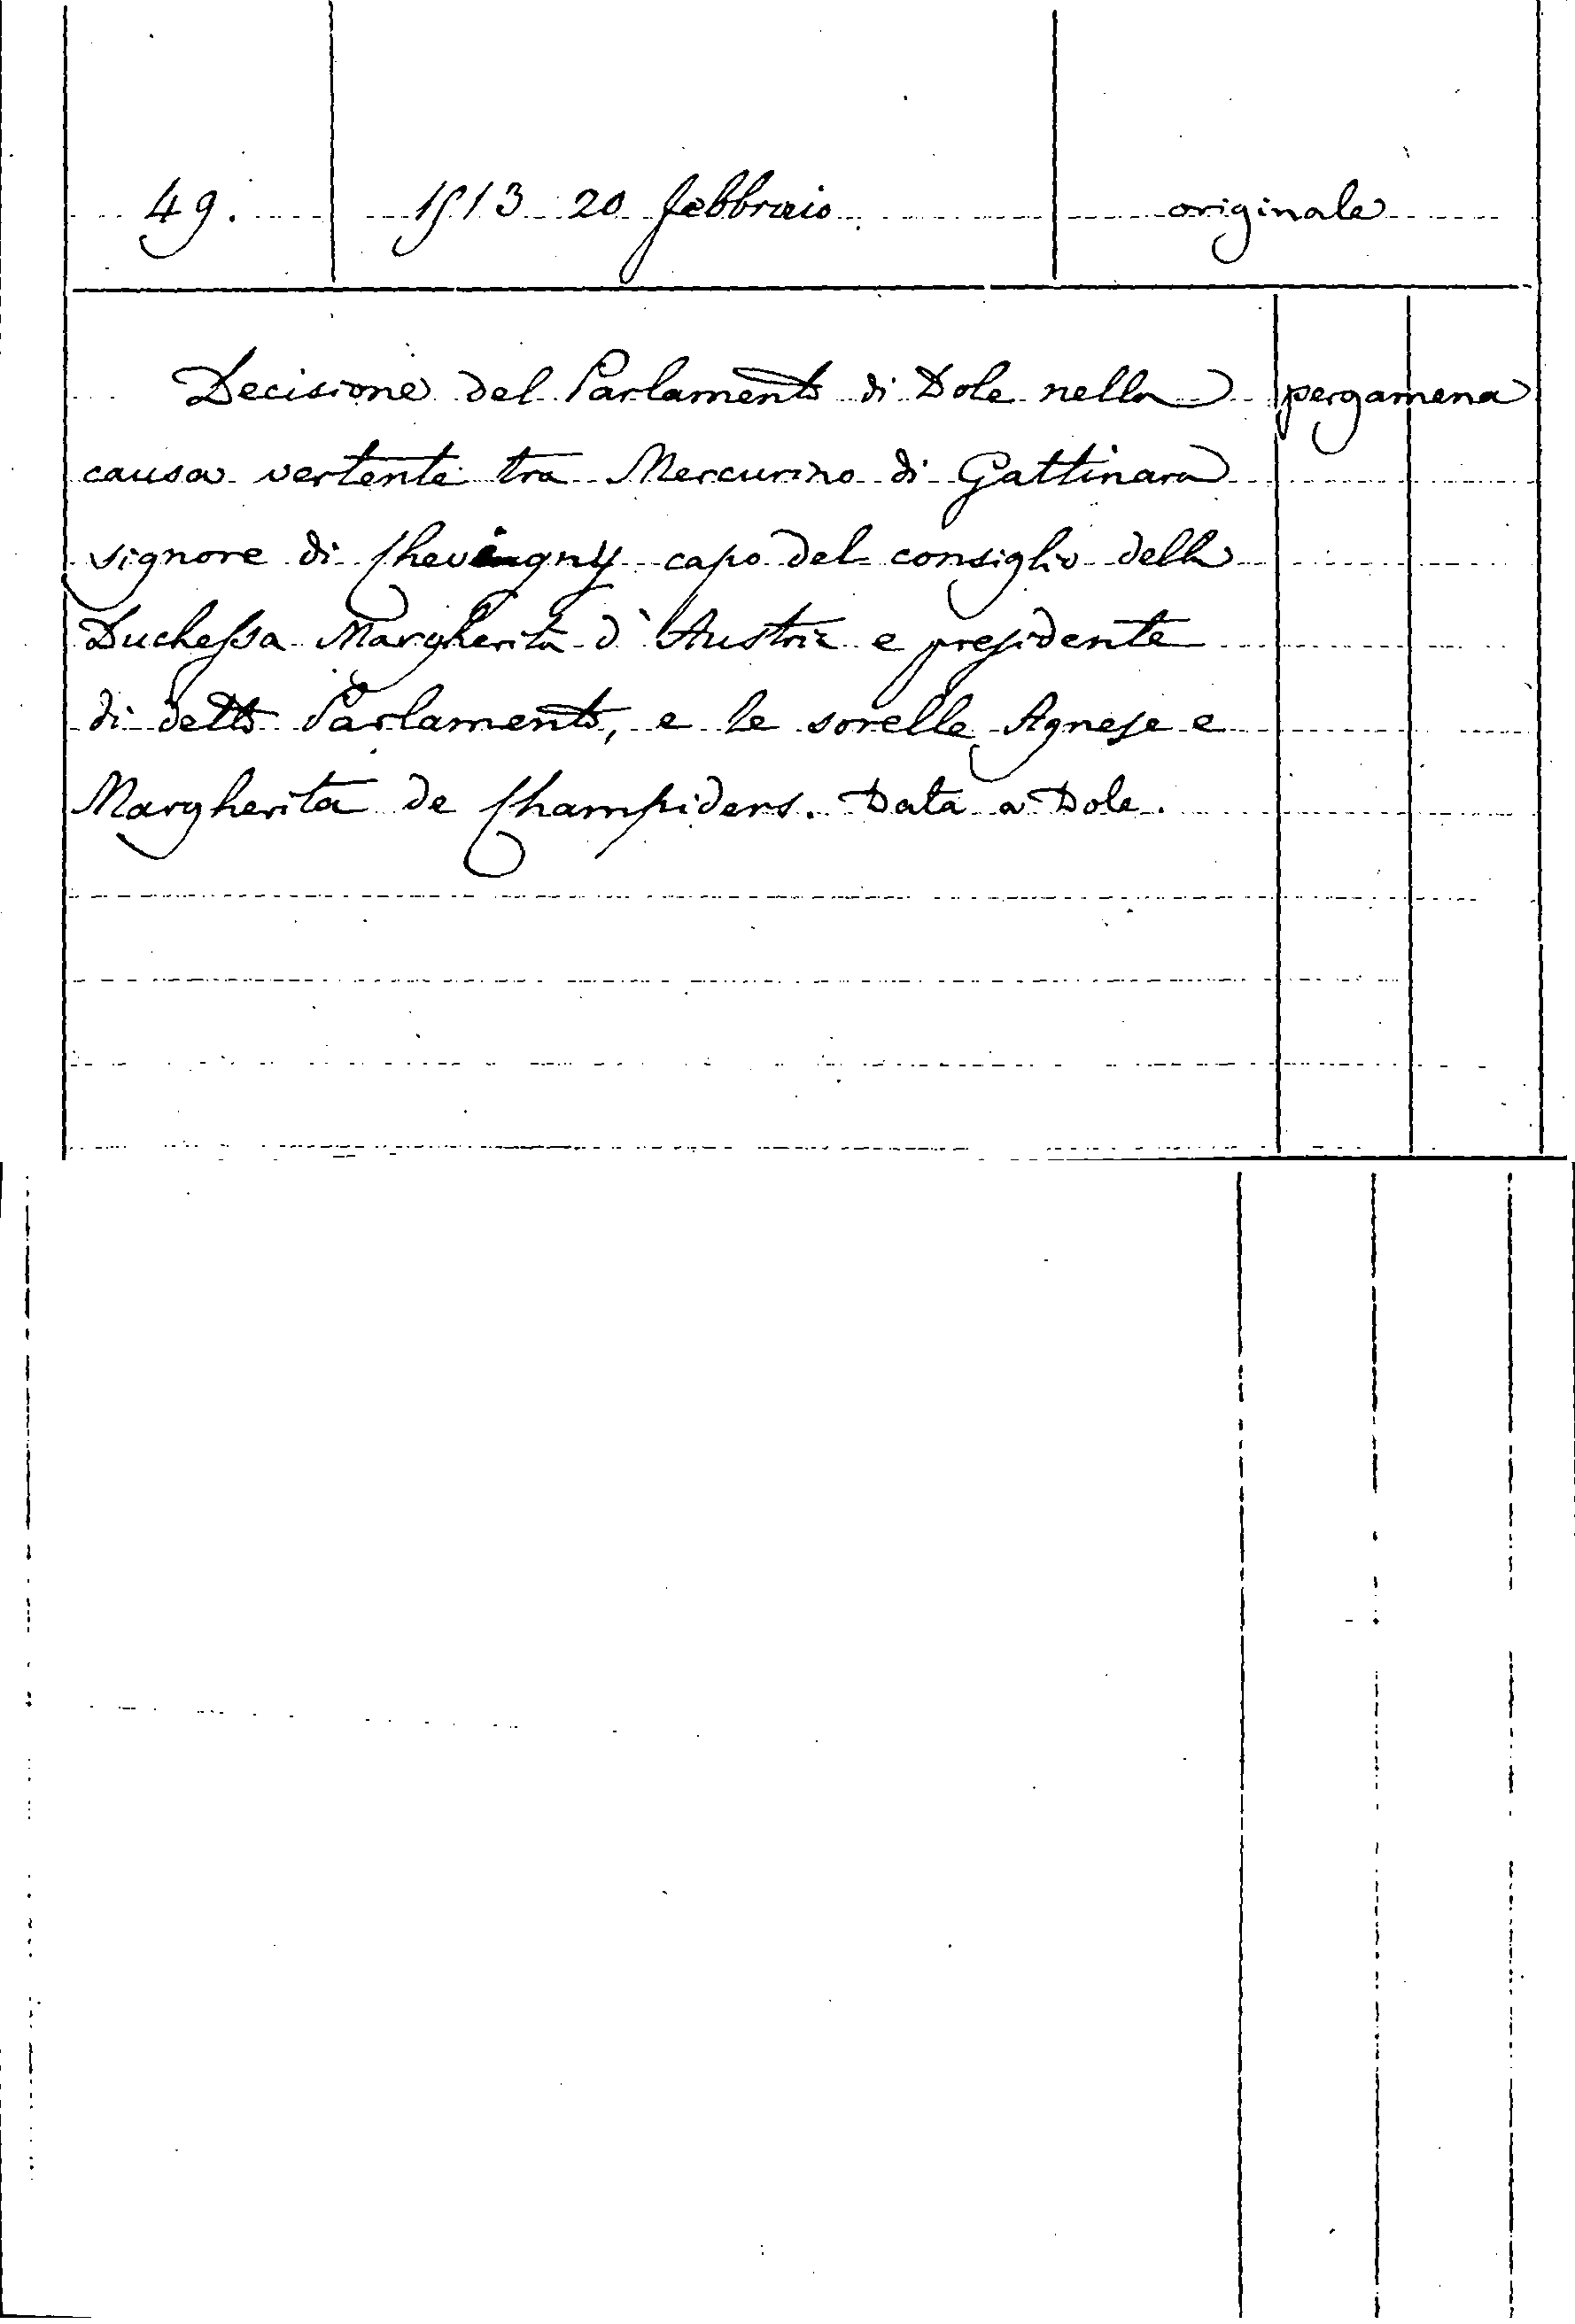 49. 1513 20 febbraio originale
Decisione del Parlamento di Dole nella pergamena
causa vertente tra Mercurino di Gattinara
signore di Chevigny capo del consiglio della
Duchessa Margherita d'Austria e presidente
di detto Parlamento, e le sorelle Agnese e
Margherita de Champiders. Data a Dole.